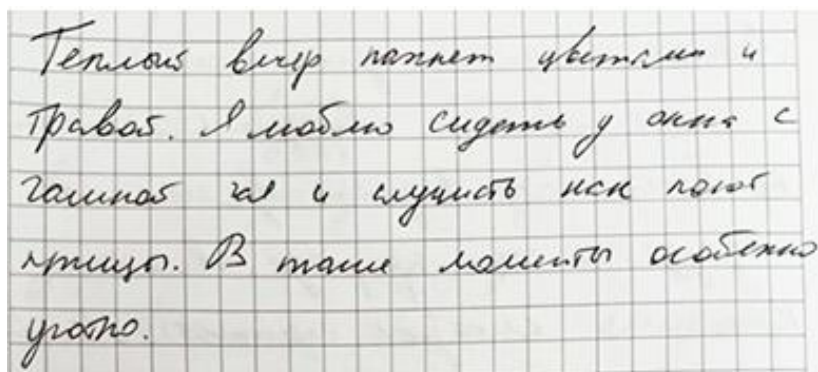 Теплый вечер пахнет цветами и
травой. Я люблю сидеть у окна с
чашкой чая и слушать как поют
птицы. В такие моменты особенно
уютно.